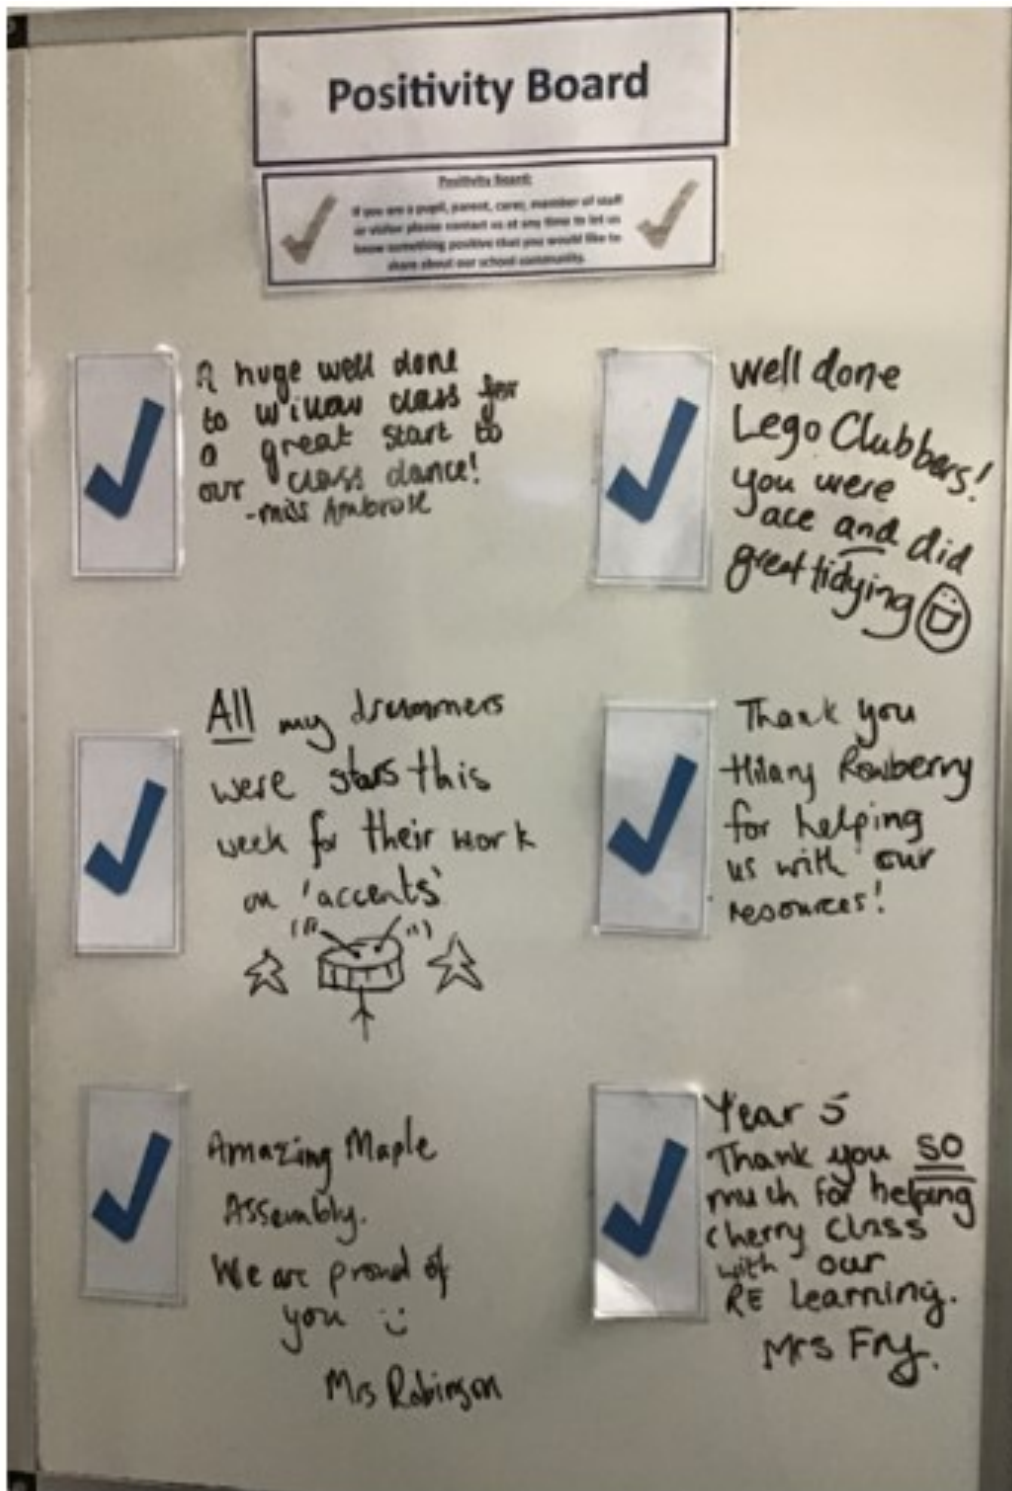 Positivity Board
Positivity Board:
If you are a pupil, parent, carer, member of staff
or visitor please contact us at any time to let us
know something positive that you would like to
share about our school community.
A huge well done
to Willow class for
a great start to
our class dance!
-Miss Ambrose
Well done
Lego Clubbers!
you were
ace and did
great tidying
All my drummers
were stars this
week for their work
on 'accents'
Thank you
Hilary Rowberry
for helping
us with our
resources!
Amazing Maple
Assembly.
We are proud of
you
Mrs Robinson
Year 5
Thank you SO
much for helping
cherry class
with our
RE learning.
Mrs Fry.